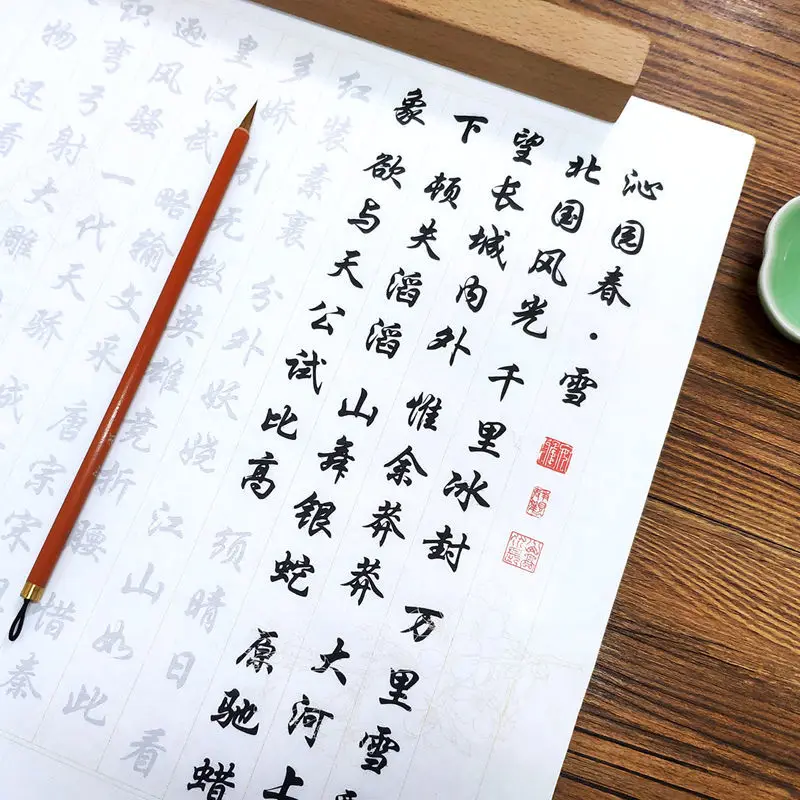 沁园春·雪
北国风光 千里冰封 万里雪
望长城内外 惟余莽莽 大河上
下 顿失滔滔 山舞银蛇 原驰蜡
象 欲与天公试比高 须晴日 看
红装素裹 分外妖娆 江山如此
多娇 引无数英雄竞折腰 惜秦
皇汉武 略输文采 唐宗宋
逊风骚 一代天骄 成
识弯弓射大雕
物 还看